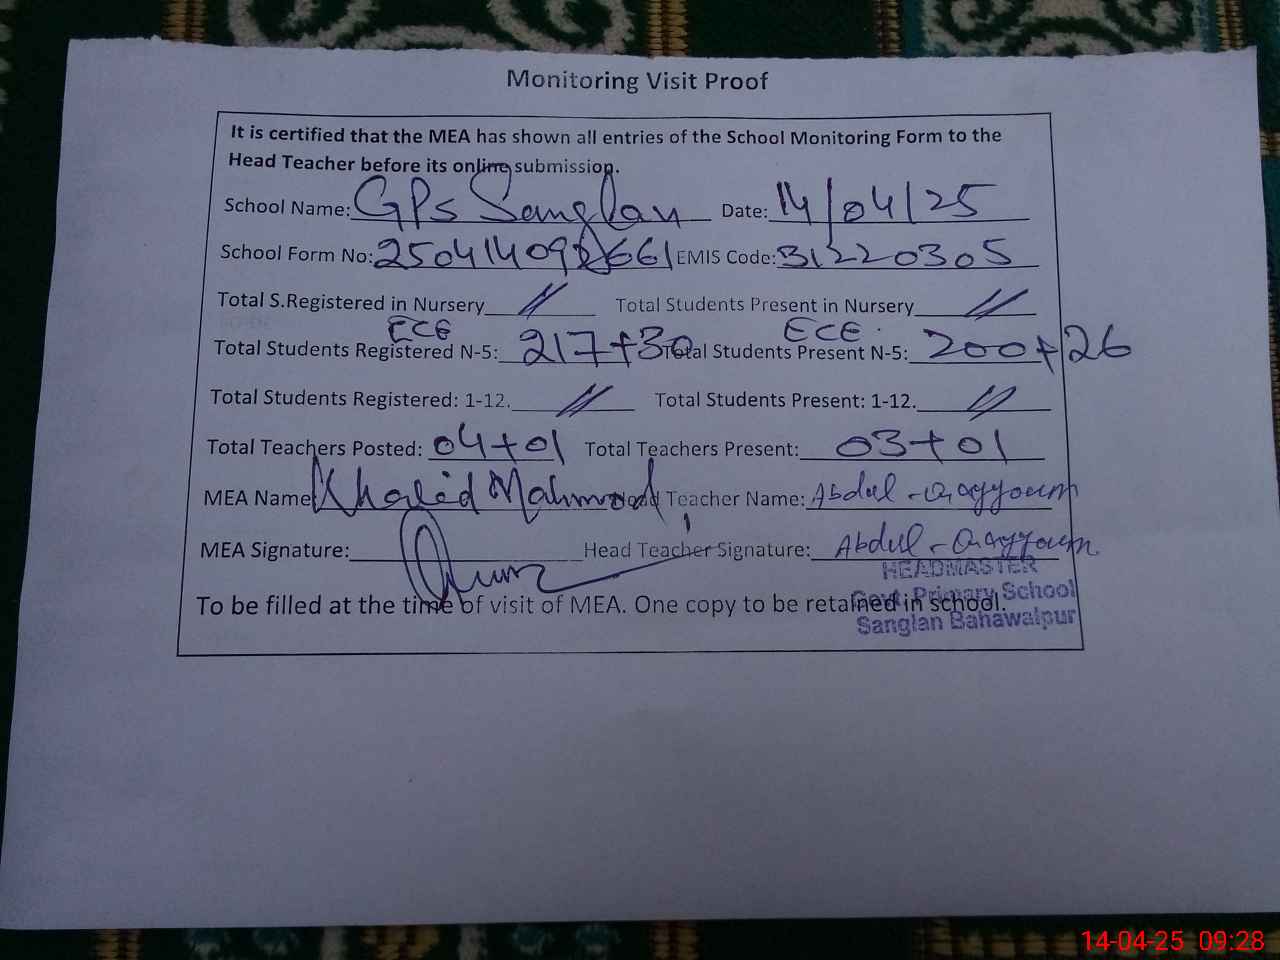 Monitoring Visit Proof
It is certified that the MEA has shown all entries of the School Monitoring Form to the
Head Teacher before its online submission.
School Name: GPs Sanglan Date: 14/04/25
School Form No: EMIS Code: 31220305
Total S.Registered in Nursery Total Students Present in Nursery
ECE ECE
Total Students Registered N-5: 217+30 Total Students Present N-5: 200+26
Total Students Registered: 1-12. Total Students Present: 1-12.
Total Teachers Posted: 04+01 Total Teachers Present: 03+01
MEA Name Khalid Mahmood Head Teacher Name: Abdul-Qayyoum
MEA Signature: Head Teacher Signature: Abdul-Qayyoum
HEADMASTER
Govt: Primary School
To be filled at the time of visit of MEA. One copy to be retained in school.
Sanglan Bahawalpur
14-04-25 09:28